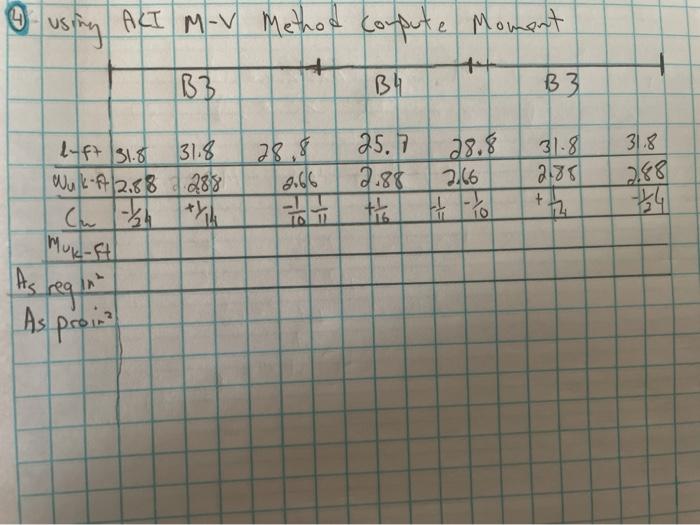 ④ using ACI M-V Method Compute Moment
B3 B4 B3
l-ft 31.8 31.8 28.8 25.7 28.8 31.8 31.8
Wu k-ft 2.88 2.88 2.66 2.88 2.66 2.88 2.88
Cm -1/24 +1/14 -1/10 1/11 +1/16 -1/11 -1/10 +1/14 -1/24
Mu k-ft
As req in²
As pro in²